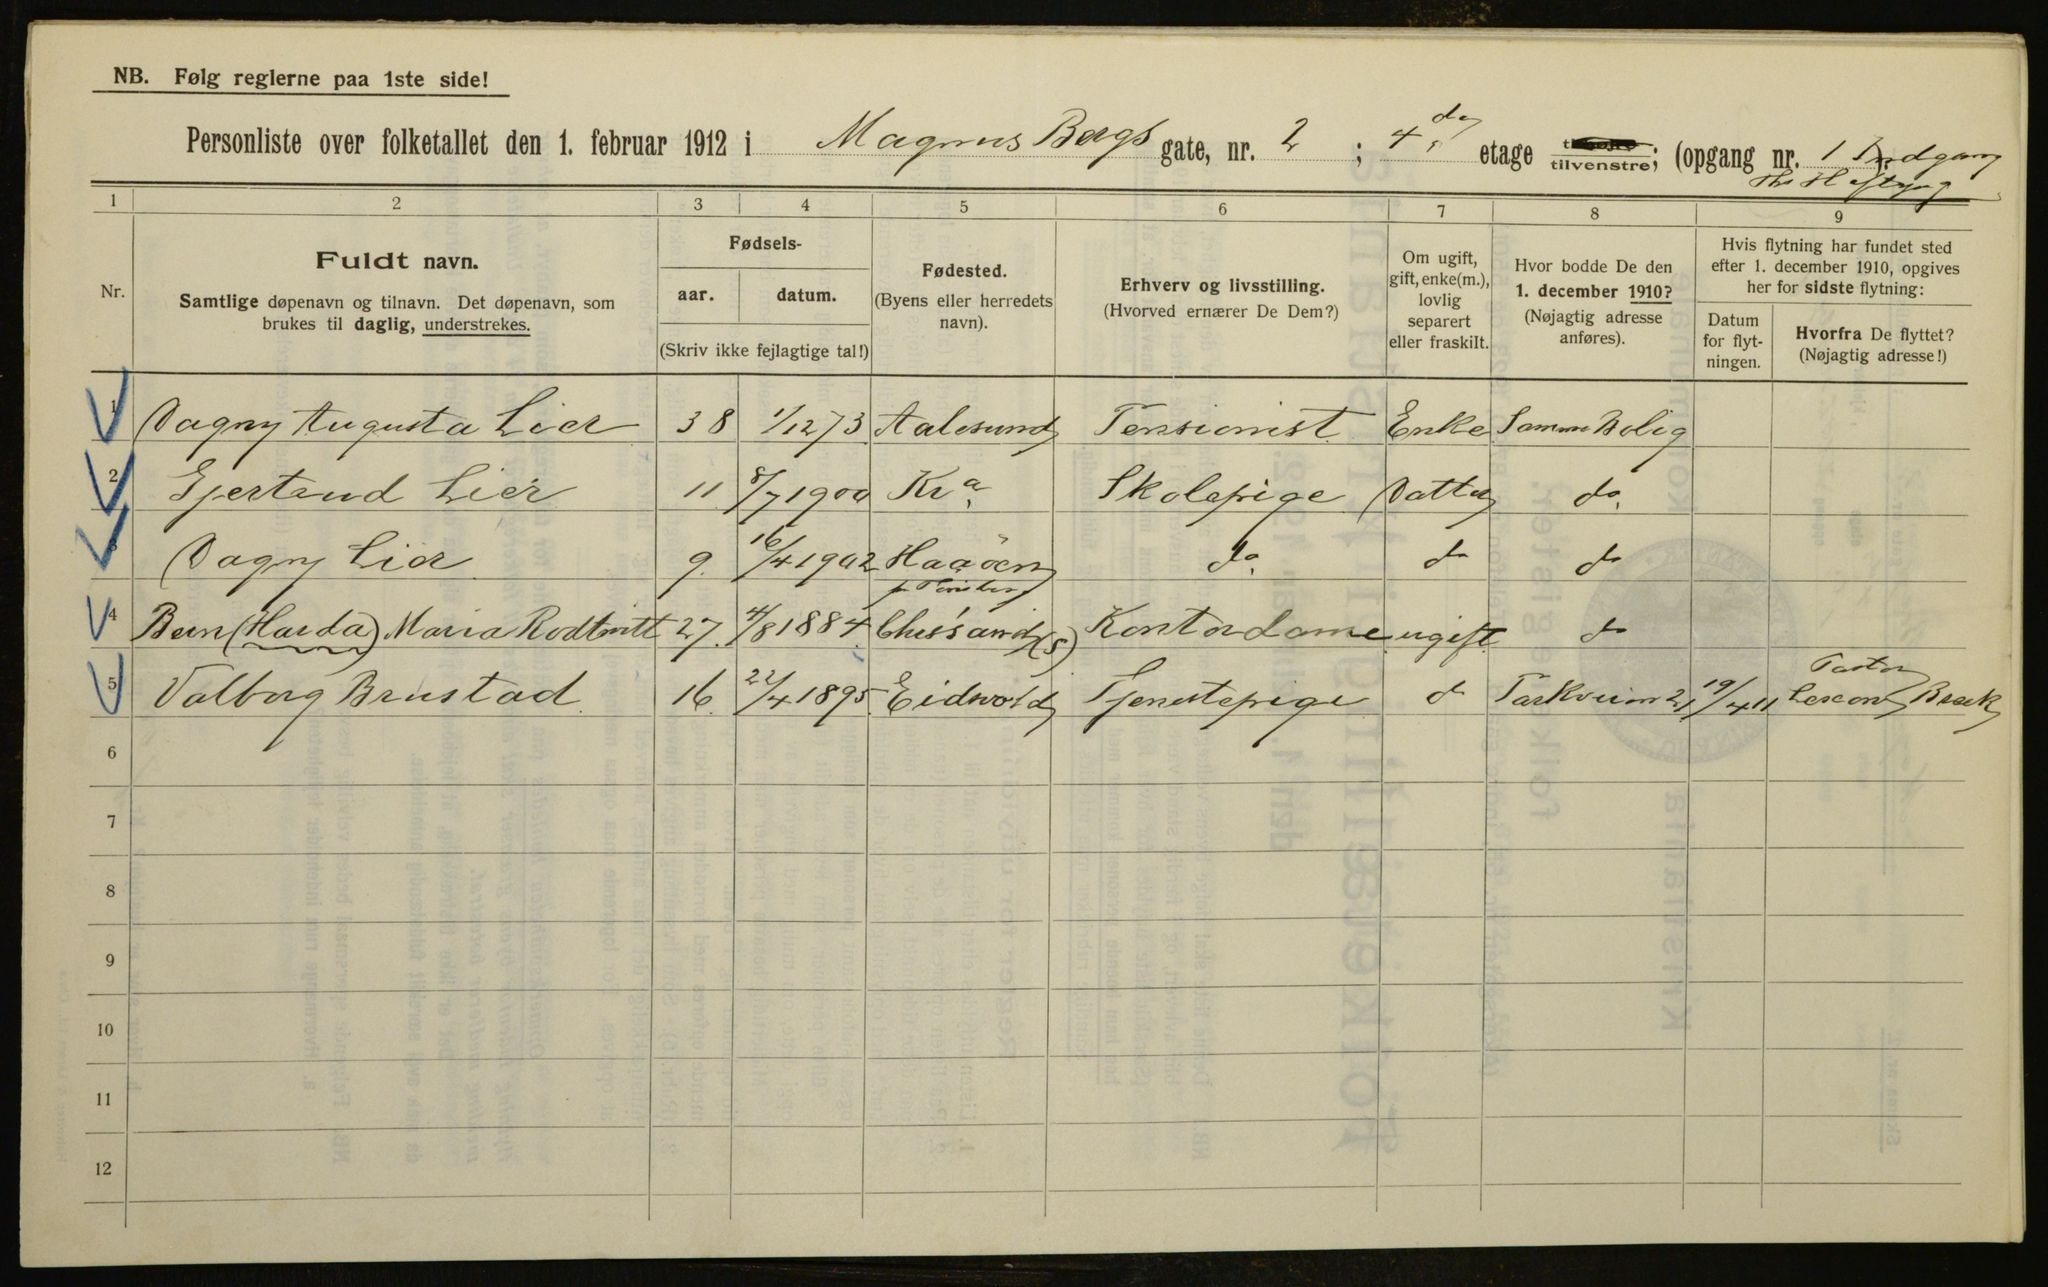 NB. Følg reglerne paa 1ste side!
Personliste over folketallet den 1. februar 1912 i Magnus Bergs gate, nr. 2 ; 4de etage tilvenstre; (opgang nr. 1 Indgang
1 2 3 4 5 6 7 8 9
Nr.
Fuldt navn.
Samtlige døpenavn og tilnavn. Det døpenavn, som
brukes til daglig, understrekes.
Fødsels-
aar. datum.
(Skriv ikke fejlagtige tal!)
Fødested.
(Byens eller herredets
navn).
Erhverv og livsstilling.
(Hvorved ernærer De Dem?)
Om ugift,
gift, enke(m.),
lovlig
separert
eller fraskilt.
Hvor bodde De den
1. december 1910?
(Nøjagtig adresse
anføres).
Hvis flytning har fundet sted
efter 1. december 1910, opgives
her for sidste flytning:
Datum
for flyt-
ningen.
Hvorfra De flyttet?
(Nøjagtig adresse!)
1 Dagny Augusta Lier 38 1/12 73 Aalesund Pensionist Enke Samme Bolig
2 Lier 11 8/7 1900 Kra Skolepige Datter do
3 Dagny Lier 9 16/4 1902 Haaöen do do do
4 Bern (Harda) Maria Rodtwitt 27 4/8 1884 Chr.sand (S) Kontordame ugift do
5 Valborg Brustad 16 22/4 1895 Eidsvold Tjenestepige do Parkveien 21 19/4 11 Pastor Brock
6
7
8
9
10
11
12